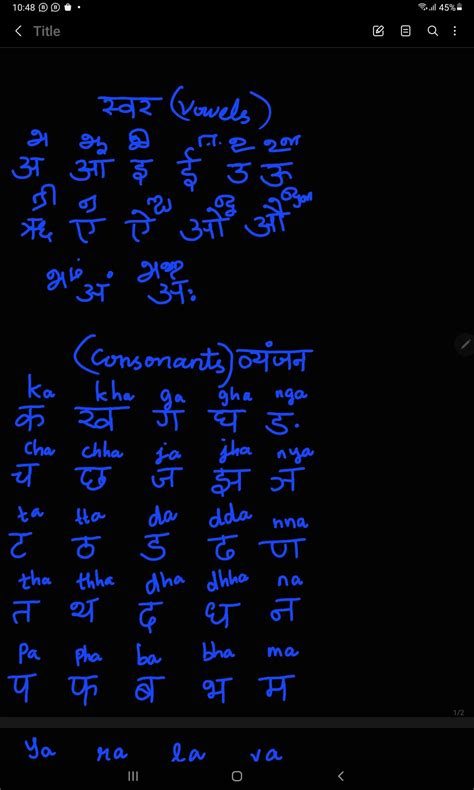 10:48
45%
Title
स्वर (Vowels)
अ आ इ ई उ ऊ
ऋ ए ऐ ओ औ
अं अः
(Consonants) व्यंजन
ka kha ga gha nga
क ख ग घ ङ
cha chha ja jha nya
च छ ज झ ञ
ta tta da dda nna
ट ठ ड ढ ण
tha thha dha dhha na
त थ द ध न
pa pha ba bha ma
प फ ब भ म
1/2
ya ra la va